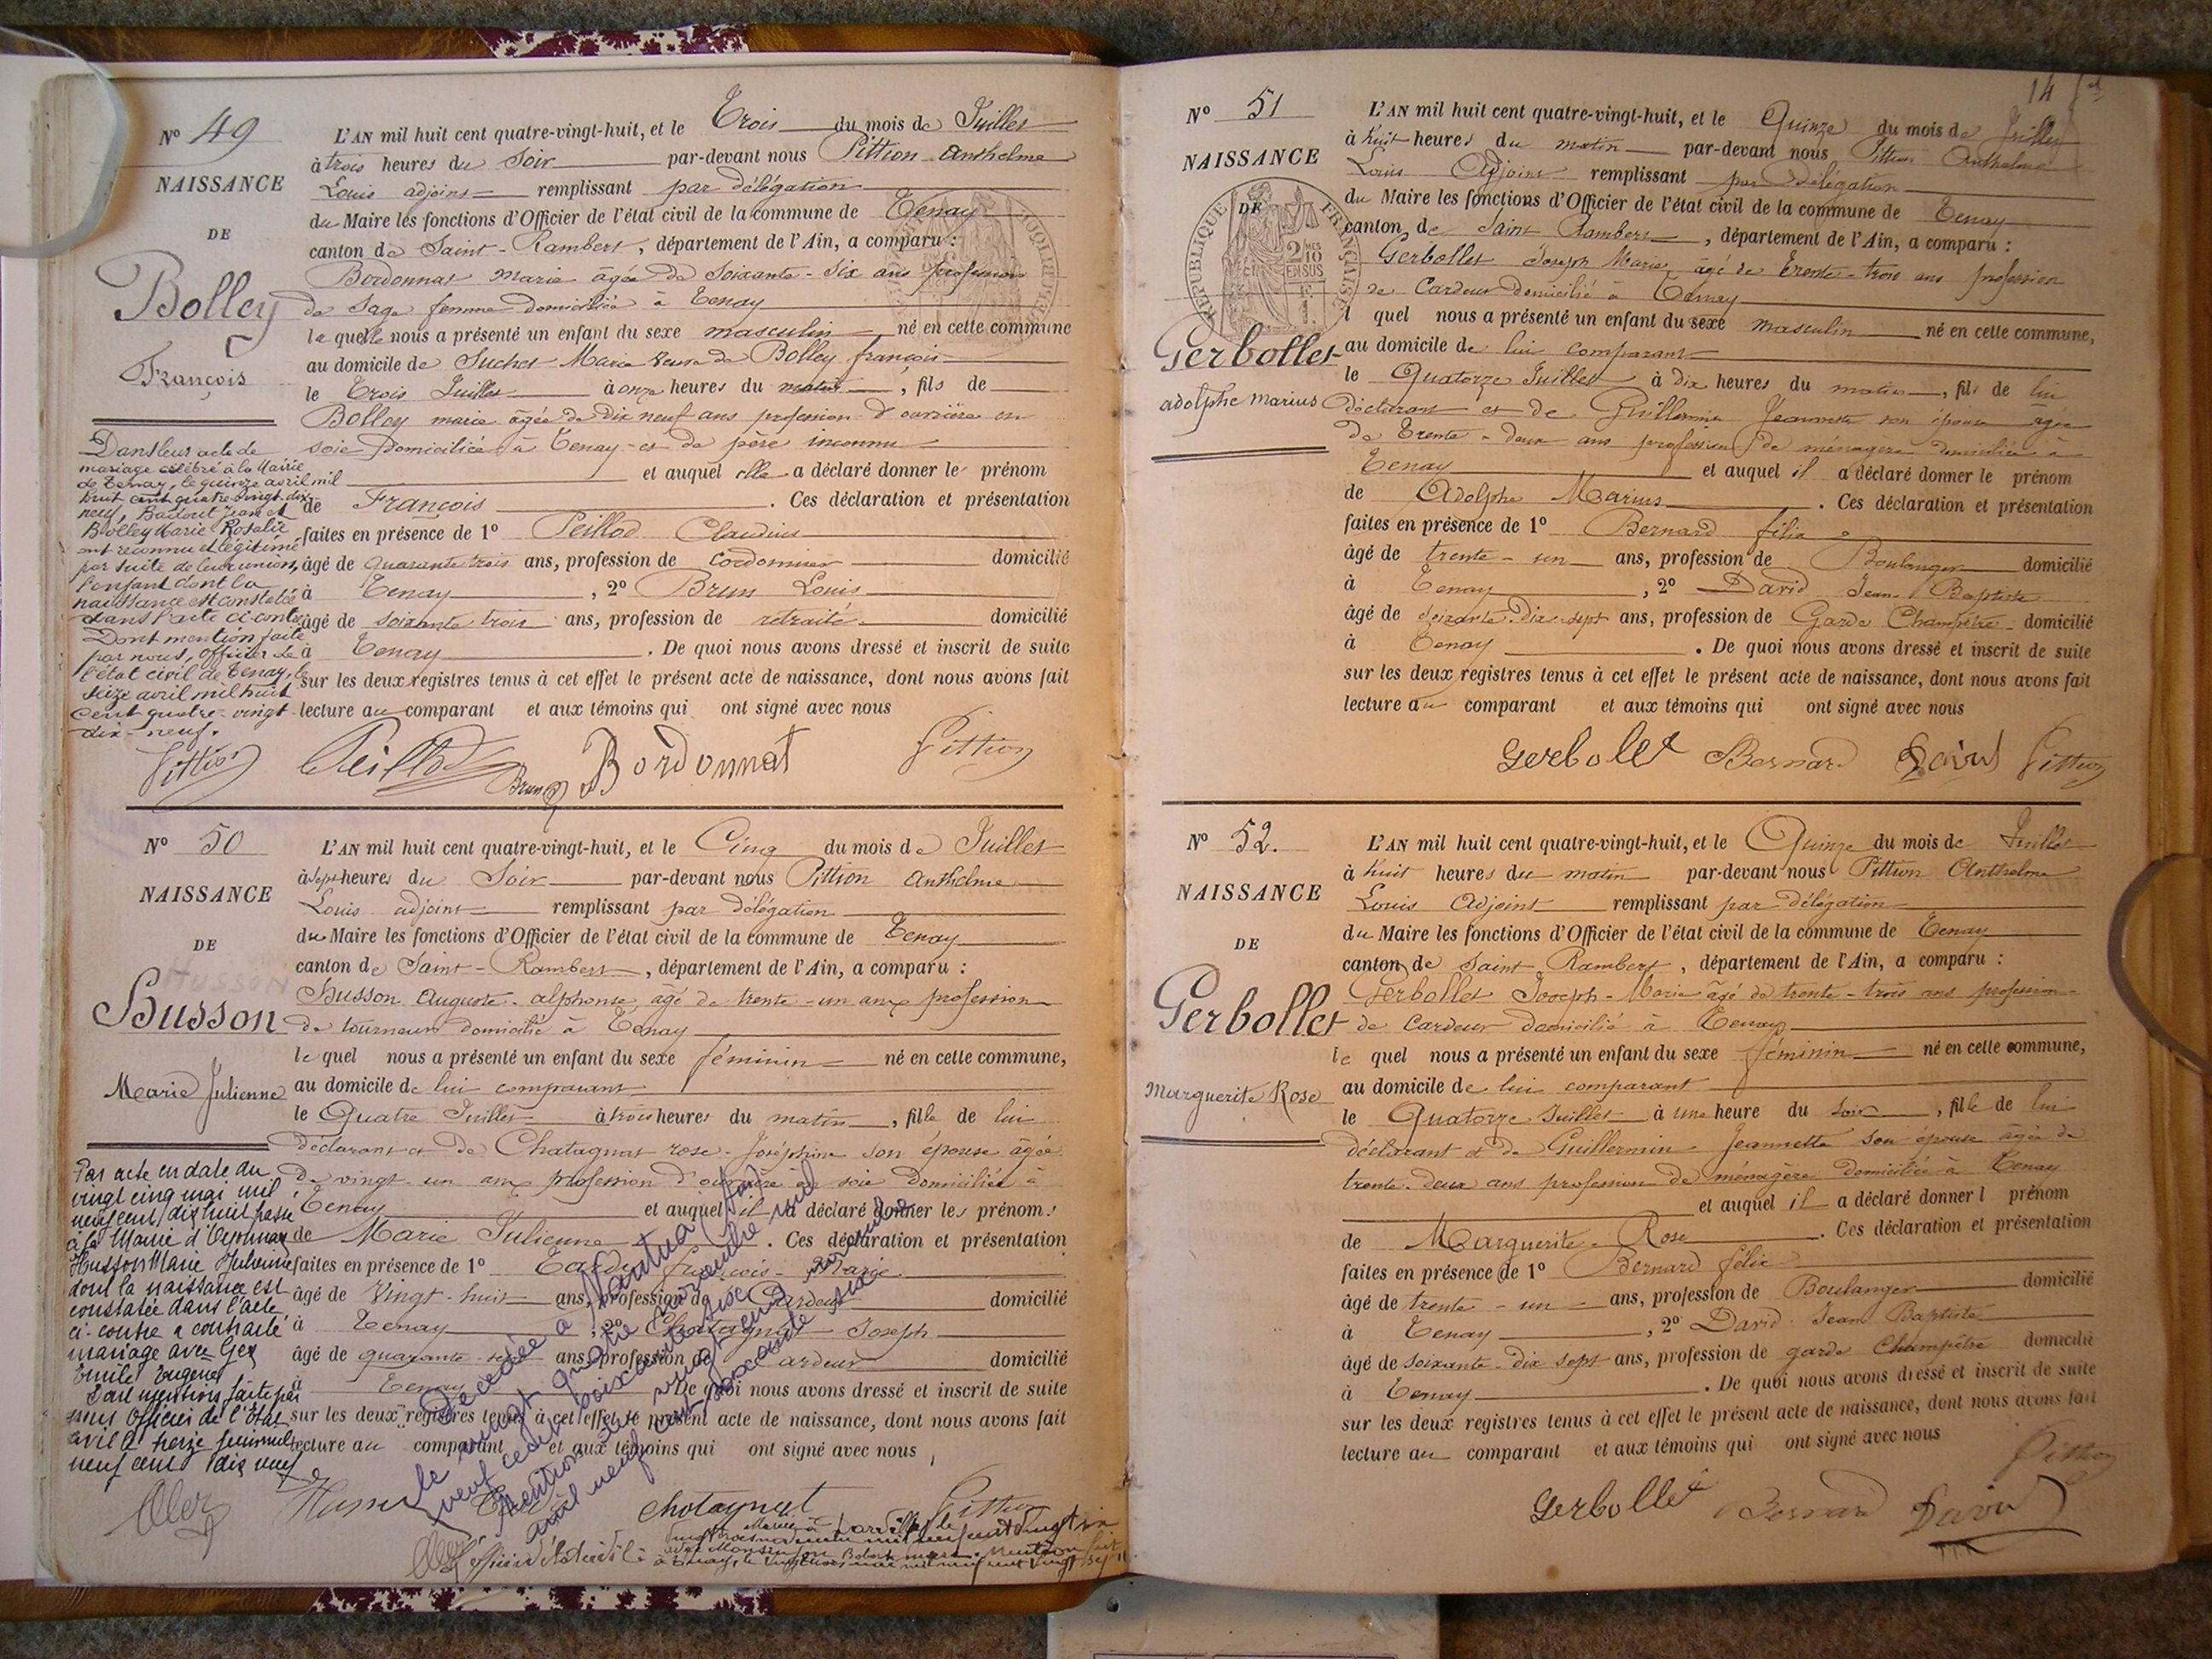 N° 49
NAISSANCE
DE
Bolley
François
L'AN mil huit cent quatre-vingt-huit, et le Trois du mois de Juillet
à trois heures du Soir par-devant nous Pittion Anthelme
Louis adjoint remplissant par délégation
du Maire les fonctions d'Officier de l'état civil de la commune de Tenay
canton de Saint-Rambert, département de l'Ain, a comparu :
Bordonnat Marie âgée de Soixante-six ans profession
de Sage femme domiciliée à Tenay
la quelle nous a présenté un enfant du sexe masculin né en cette commune
au domicile de Suchet Marie veuve de Bolley françois
le Trois Juillet à onze heures du matin, fils de
Bolley marie âgée de dix neuf ans profession d'ouvrière en
soie domiciliée à Tenay et de père inconnu
et auquel elle a déclaré donner le prénom
de François. Ces déclaration et présentation
faites en présence de 1° Peillod Claudius
âgé de quarante trois ans, profession de Cordonnier domicilié
à Tenay, 2° Brun Louis
âgé de soixante trois ans, profession de retraité domicilié
à Tenay. De quoi nous avons dressé et inscrit de suite
sur les deux registres tenus à cet effet le présent acte de naissance, dont nous avons fait
lecture au comparant et aux témoins qui ont signé avec nous
Dans leur acte de
mariage célébré à la Mairie
de Tenay, le quinze avril mil
huit cent quatre-vingt-dix
neuf, Badout Jean et
Bolley Marie Rosalie
ont reconnu et légitimé
par suite de leur union,
l'enfant dont la
naissance est constatée
dans l'acte ci-contre
Dont mention faite
par nous, officier de
l'état civil de Tenay, le
seize avril mil huit
cent quatre-vingt
dix-neuf.
Pittion Peillod Brun Bordonnat Pittion
N° 50
NAISSANCE
DE
HUSSON
Husson
Marie Julienne
L'AN mil huit cent quatre-vingt-huit, et le Cinq du mois de Juillet
à sept heures du Soir par-devant nous Pittion Anthelme
Louis adjoint remplissant par délégation
du Maire les fonctions d'Officier de l'état civil de la commune de Tenay
canton de Saint-Rambert, département de l'Ain, a comparu :
Husson Auguste-alphonse, âgé de trente-un ans profession
de tourneur domicilié à Tenay
le quel nous a présenté un enfant du sexe féminin né en cette commune,
au domicile de lui comparant
le Quatre Juillet à trois heures du matin, fille de lui
déclarant et de Chatagnat rose-Joséphine son épouse âgée
de vingt-un ans profession d'ouvrière en soie domiciliée à
Tenay et auquel il a déclaré donner les prénoms
de Marie Julienne. Ces déclaration et présentation
faites en présence de 1° Tardy François-Marie
âgé de Vingt-huit ans, profession de Cardeur domicilié
à Tenay, 2° Chatagnat Joseph
âgé de quarante-sept ans, profession de Cardeur domicilié
à Tenay. De quoi nous avons dressé et inscrit de suite
sur les deux registres tenus à cet effet le présent acte de naissance, dont nous avons fait
lecture au comparant et aux témoins qui ont signé avec nous,
Par acte en date du
vingt cinq mai mil
neuf cent dix huit passé
à la Mairie d'Oyonnax
Husson Marie Julienne
dont la naissance est
constatée dans l'acte
ci-contre a contracté
mariage avec Gex
Emile Eugène
Dont mention faite par
nous Officier de l'Etat
civil le treize juin mil
neuf cent dix neuf
Décédée à Nantua (Ain)
le vingt quatre novembre mil
neuf cent soixante six
Mention du vingt cinq novembre
mil neuf cent soixante six
Husson Chatagnat Pittion
Mariée à le
L'officier d'état civil
14
N° 51
NAISSANCE
DE
RÉPUBLIQUE FRANÇAISE
2/10
EN SUS
Gerbollet
adolphe marius
L'AN mil huit cent quatre-vingt-huit, et le Quinze du mois de Juillet
à huit heures du matin par-devant nous Pittion Anthelme
Louis Adjoint remplissant par délégation
du Maire les fonctions d'Officier de l'état civil de la commune de Tenay
canton de Saint Rambert, département de l'Ain, a comparu :
Gerbollet Joseph Marie, âgé de Trente-trois ans profession
de Cardeur domicilié à Tenay
l quel nous a présenté un enfant du sexe masculin né en cette commune,
au domicile de lui comparant
le Quatorze Juillet à dix heures du matin, fils de lui
déclarant et de Guillermin Jeannette son épouse âgée
de Trente-deux ans profession de ménagère domiciliée à
Tenay et auquel il a déclaré donner le prénom
de Adolphe Marius. Ces déclaration et présentation
faites en présence de 1° Bernard félix
âgé de trente-un ans, profession de Boulanger domicilié
à Tenay, 2° David Jean-Baptiste
âgé de soixante-Dix-sept ans, profession de Garde Champêtre domicilié
à Tenay. De quoi nous avons dressé et inscrit de suite
sur les deux registres tenus à cet effet le présent acte de naissance, dont nous avons fait
lecture au comparant et aux témoins qui ont signé avec nous
Gerbollet Bernard David Pittion
N° 52.
NAISSANCE
DE
Gerbollet
Marguerite Rose
L'AN mil huit cent quatre-vingt-huit, et le Quinze du mois de Juillet
à huit heures du matin par-devant nous Pittion Anthelme
Louis Adjoint remplissant par délégation
du Maire les fonctions d'Officier de l'état civil de la commune de Tenay
canton de Saint Rambert, département de l'Ain, a comparu :
Gerbollet Joseph-Marie âgé de trente-trois ans profession
de Cardeur domicilié à Tenay
le quel nous a présenté un enfant du sexe féminin né en cette commune,
au domicile de lui comparant
le Quatorze Juillet à une heure du soir, fille de lui
déclarant et de Guillermin Jeannette son épouse âgée de
trente-deux ans profession de ménagère domiciliée à Tenay
et auquel il a déclaré donner l prénom
de Marguerite Rose. Ces déclaration et présentation
faites en présence de 1° Bernard félix
âgé de trente-un ans, profession de Boulanger domicilié
à Tenay, 2° David Jean Baptiste
âgé de soixante-dix sept ans, profession de garde Champêtre domicilié
à Tenay. De quoi nous avons dressé et inscrit de suite
sur les deux registres tenus à cet effet le présent acte de naissance, dont nous avons fait
lecture au comparant et aux témoins qui ont signé avec nous
Gerbollet Bernard David Pittion